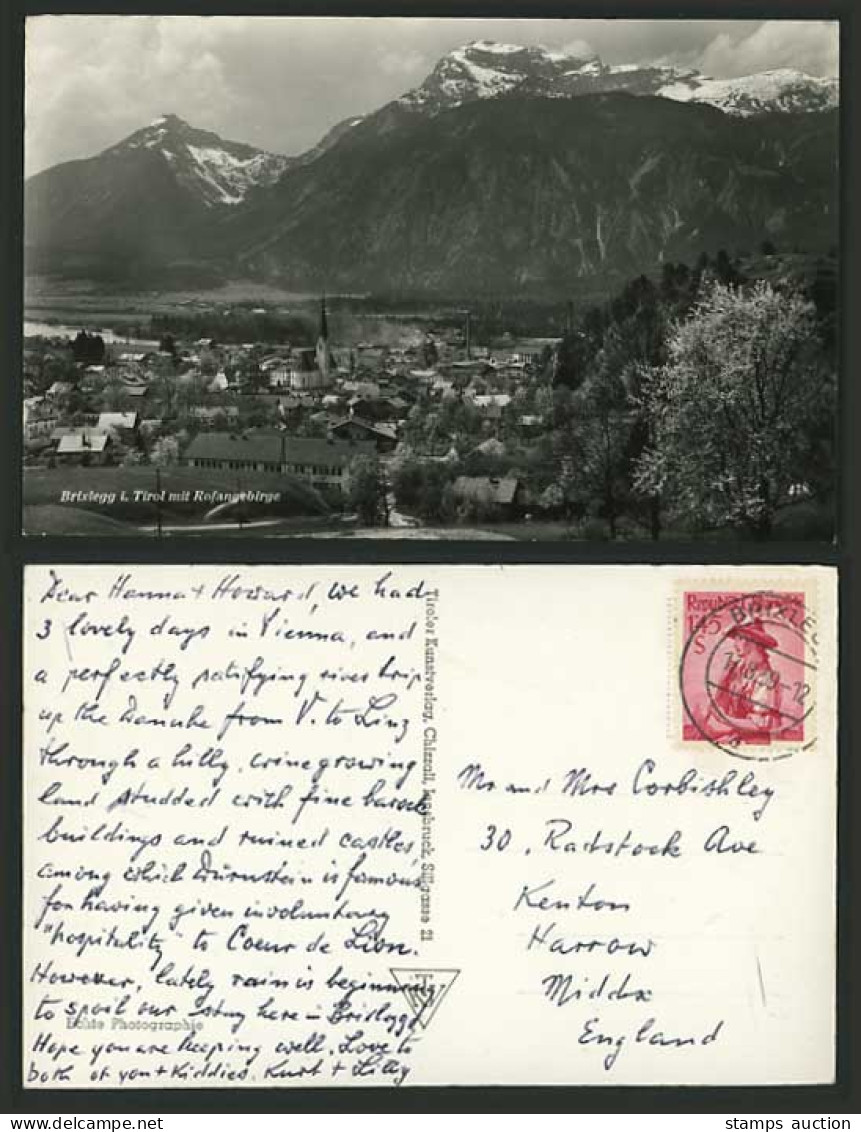 Brixlegg i. Tirol mit Rofangebirge
Dear Hanna + Howard, we had
3 lovely days in Vienna, and
a perfectly satifying river trip
up the Danube from V. to Linz
through a hilly, winegrowing
land studded with fine barock
buildings and ruined castles,
among which Dürnstein is famous
for having given involuntary
"hospitality" to Coeur de Lion.
However, lately rain is beginning
to spoil our stay here in Brixlegg.
Hope you are keeping well. Love to
both of you + Kiddies. Kurt + Lilly
Echte Photographie
Tiroler Kunstverlag, Chizzali, Innsbruck, Sillgasse 21
TKV
BRIXLEGG
12
Mr and Mrs Corbishley
30, Radstock Ave
Kenton
Harrow
Middx
England
stamps auction